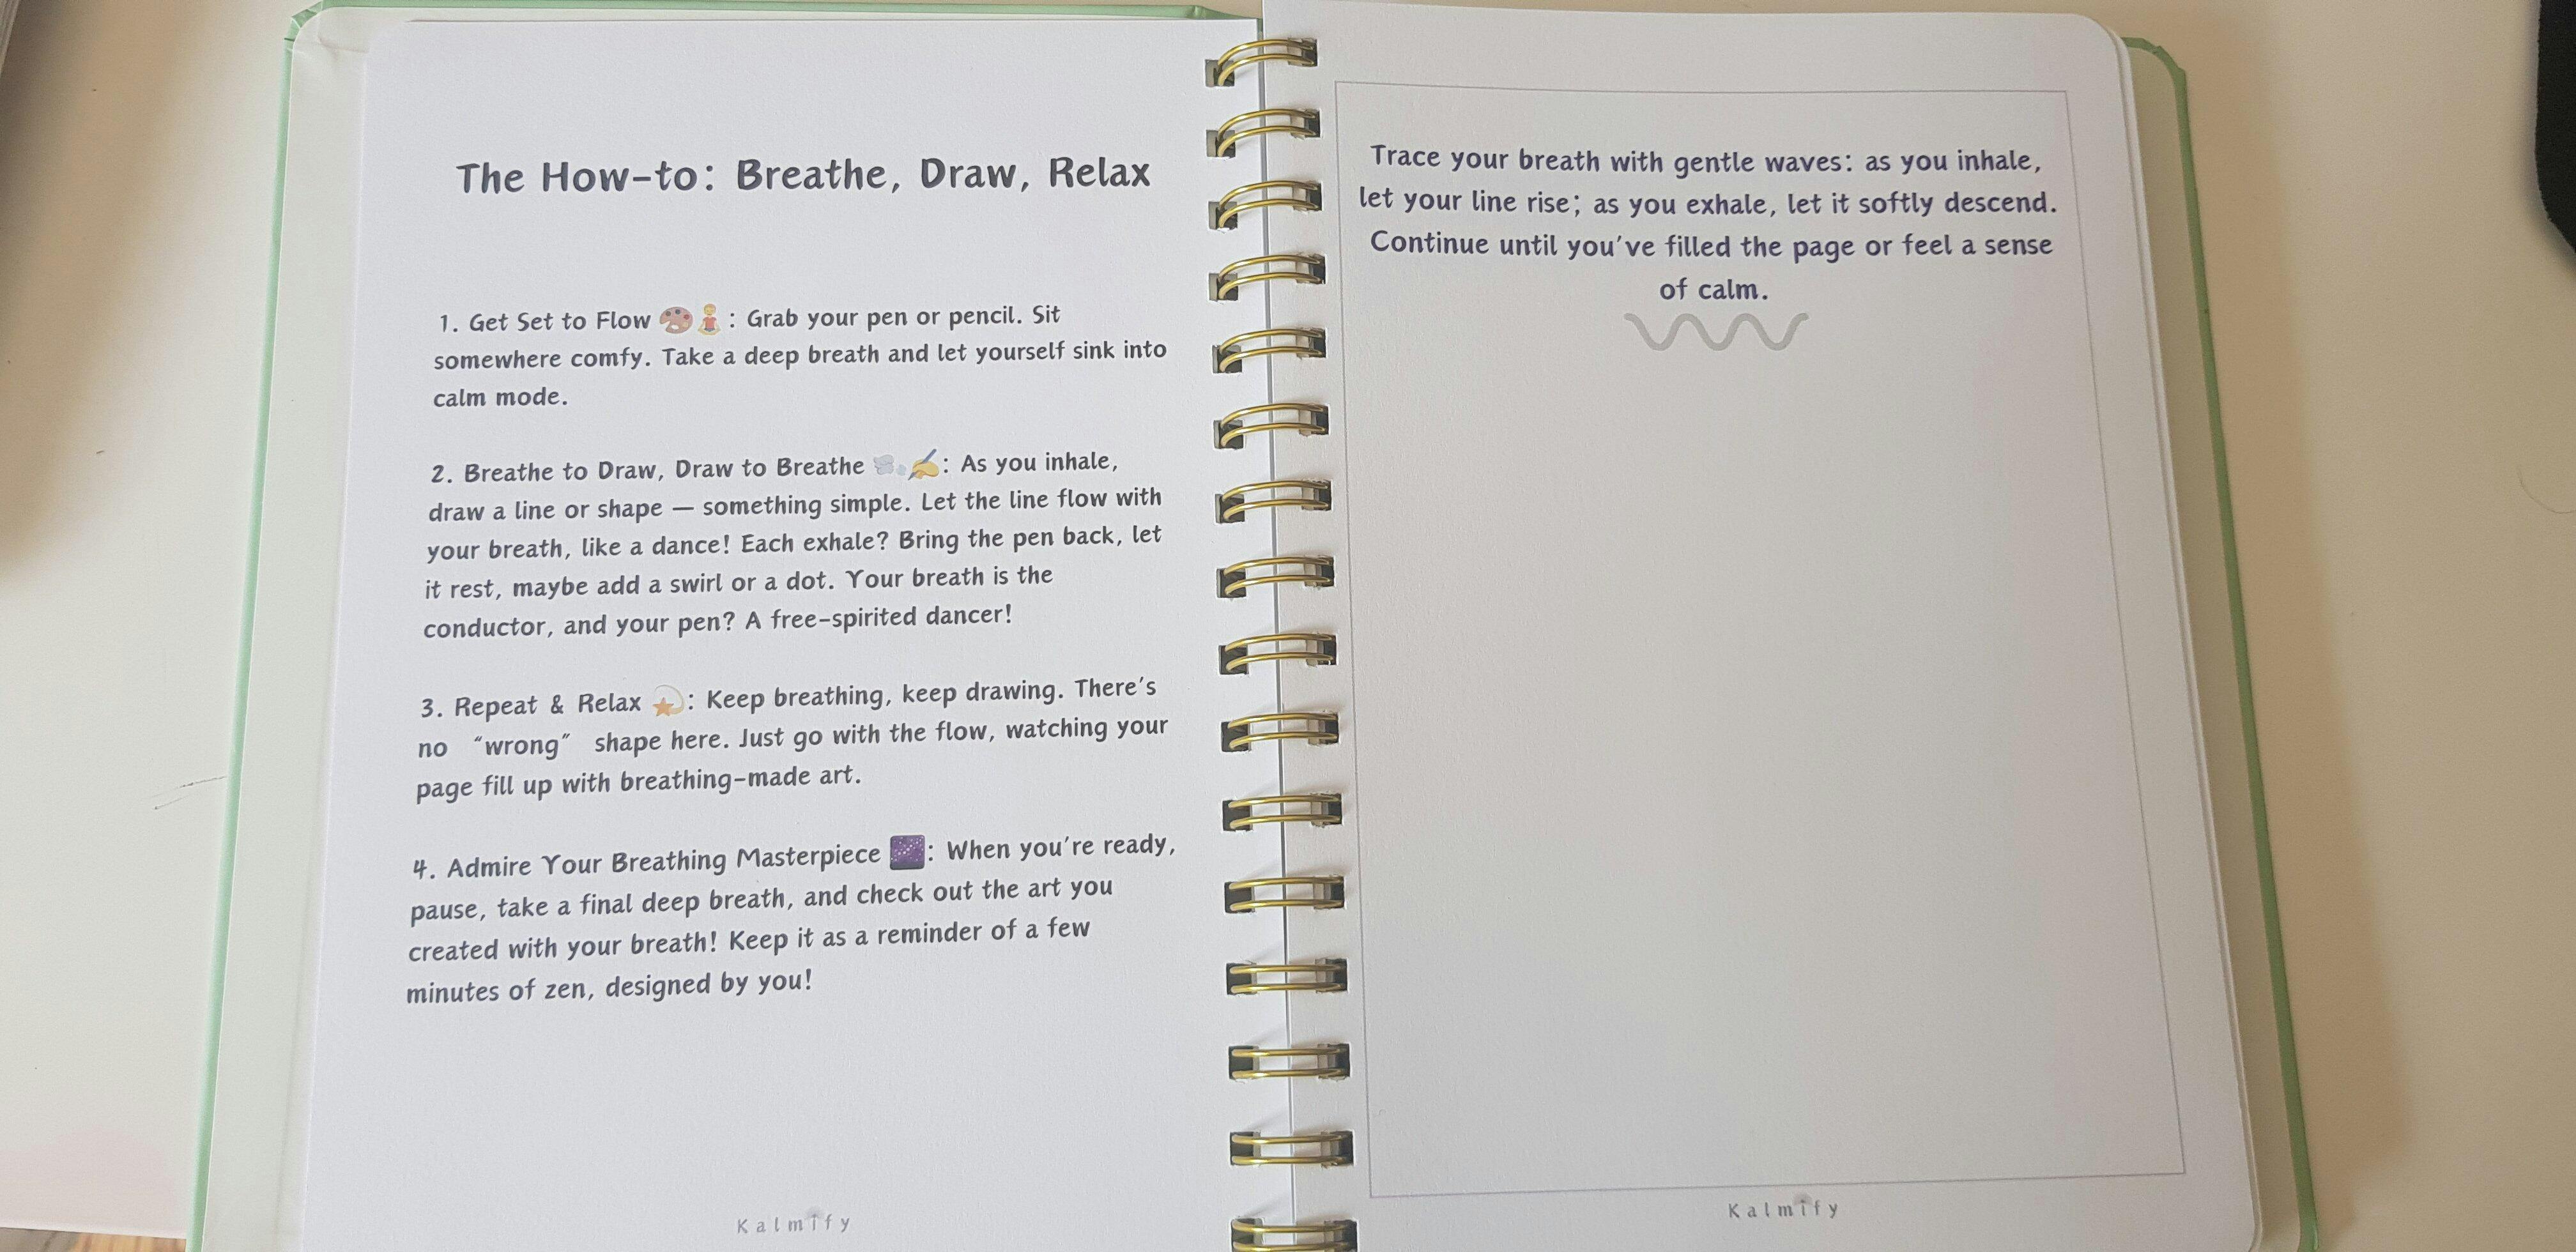 The How-to: Breathe, Draw, Relax
1. Get Set to Flow 🎨🧘: Grab your pen or pencil. Sit
somewhere comfy. Take a deep breath and let yourself sink into
calm mode.
2. Breathe to Draw, Draw to Breathe 🌬️✍️: As you inhale,
draw a line or shape — something simple. Let the line flow with
your breath, like a dance! Each exhale? Bring the pen back, let
it rest, maybe add a swirl or a dot. Your breath is the
conductor, and your pen? A free-spirited dancer!
3. Repeat & Relax 💫: Keep breathing, keep drawing. There's
no “wrong” shape here. Just go with the flow, watching your
page fill up with breathing-made art.
4. Admire Your Breathing Masterpiece 🌌: When you're ready,
pause, take a final deep breath, and check out the art you
created with your breath! Keep it as a reminder of a few
minutes of zen, designed by you!
Kalmify
Trace your breath with gentle waves: as you inhale,
let your line rise; as you exhale, let it softly descend.
Continue until you've filled the page or feel a sense
of calm.
Kalmify